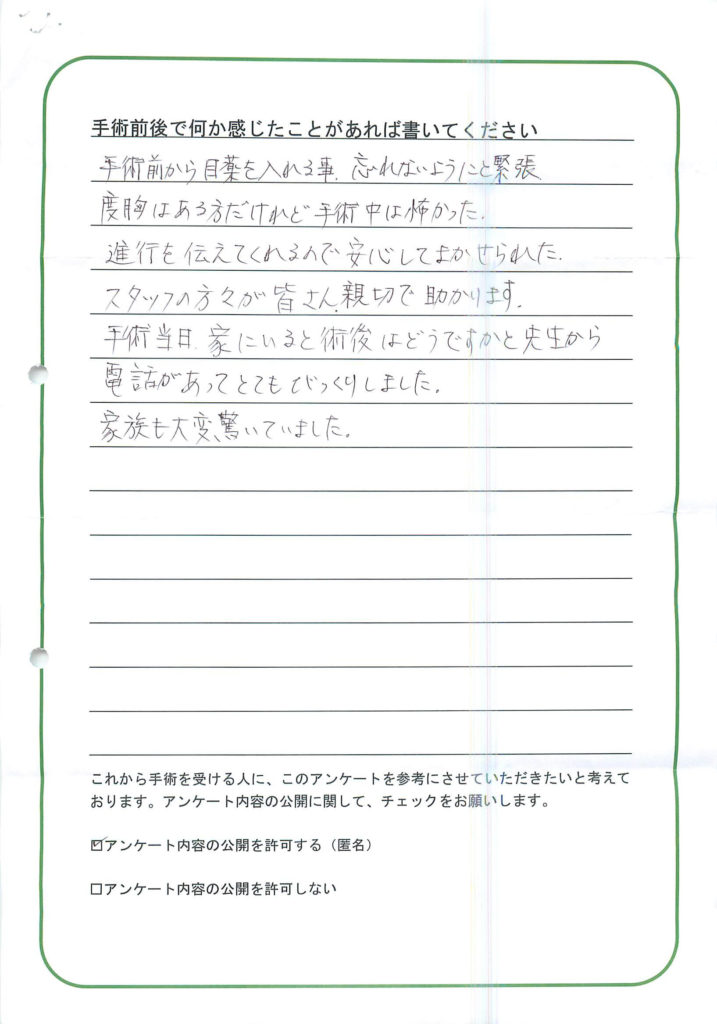 手術前後で何か感じたことがあれば書いてください
手術前から目薬を入れる事、忘れないようにと緊張、
度胸はある方だけれど手術中は怖かった。
進行を伝えてくれるので安心してまかせられた。
スタッフの方々が皆さん、親切で助かります。
手術当日、家にいると術後はどうですかと先生から
電話があってとてもびっくりしました。
家族も大変、驚いていました。
これから手術を受ける人に、このアンケートを参考にさせていただきたいと考えて
おります。アンケート内容の公開に関して、チェックをお願いします。
☑アンケート内容の公開を許可する（匿名）
□アンケート内容の公開を許可しない